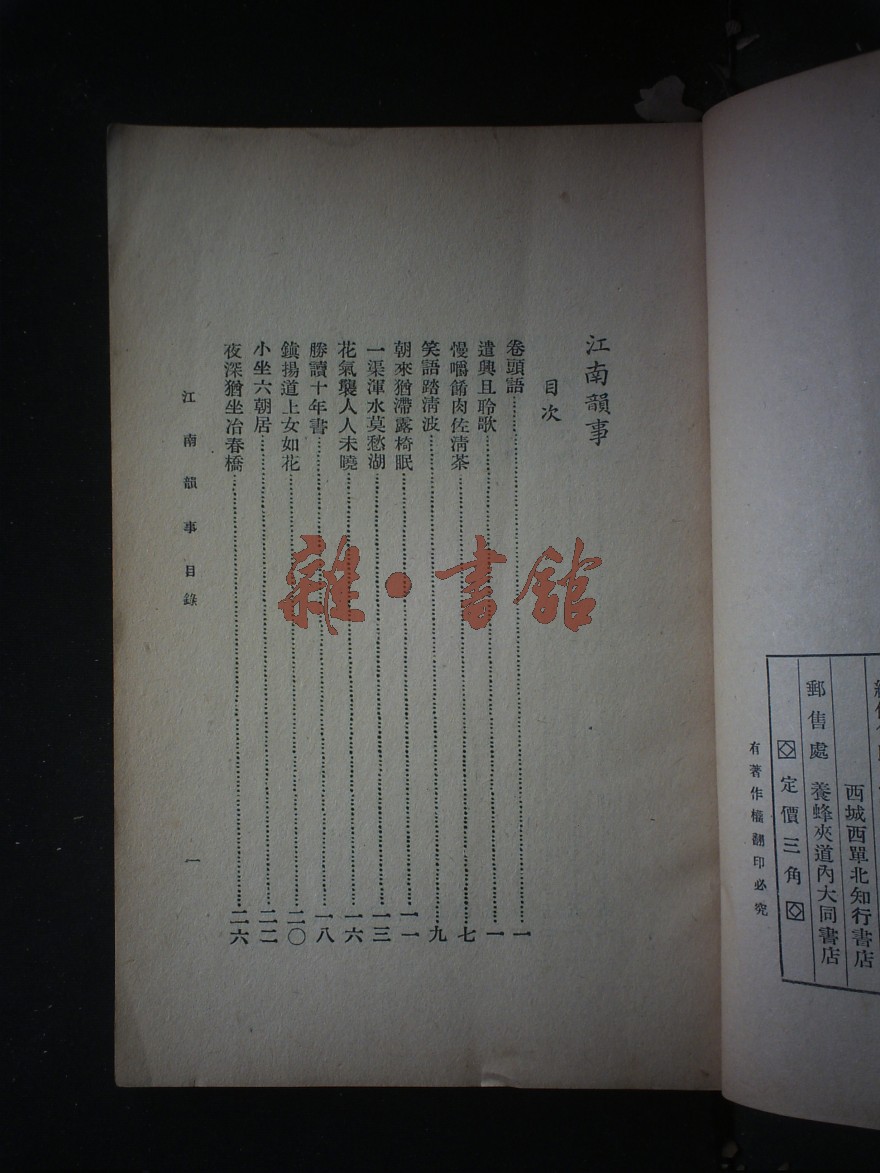 西城西單北知行書店
郵售處 養蜂夾道內大同書店
定價三角
有著作權翻印必究
江南韻事
目次
卷頭語……一
遣興且聆歌……一
慢嚼餚肉佐清茶……七
笑語踏清波……九
朝來猶滯露椅眠……一一
一渠渾水莫愁湖……一三
花氣襲人人未曉……一六
勝讀十年書……一八
鎮揚道上女如花……二〇
小坐六朝居……二二
夜深猶坐冶春橋……二六
江南韻事目錄 一
雜·書館